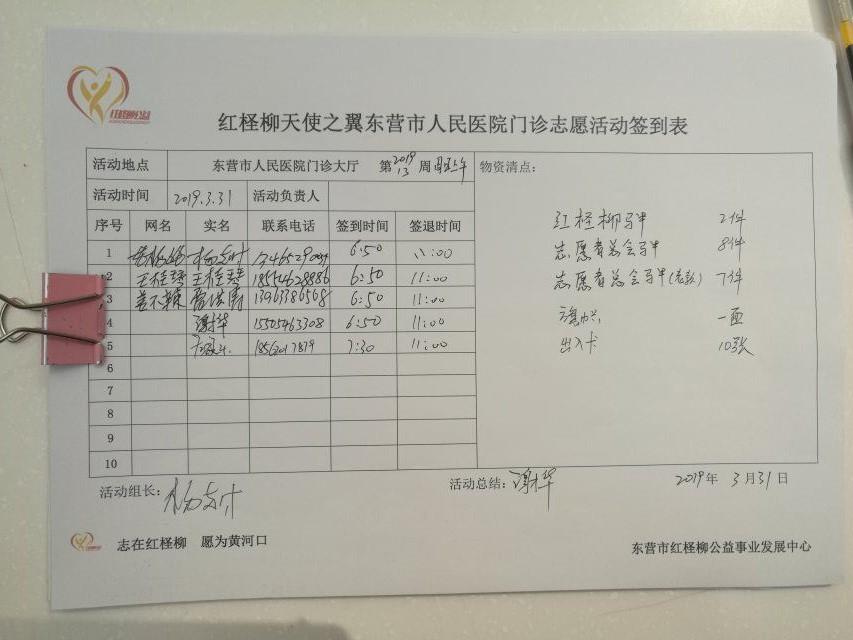 红柽柳天使之翼东营市人民医院门诊志愿活动签到表
活动地点 东营市人民医院门诊大厅 第2019 13周
物资清点：
活动时间 2019.3.31 活动负责人
序号 网名 实名 联系电话 签到时间 签退时间
1 6:50 11:00
2 王桂琴 王桂琴 18554628886 6:50 11:00
3 13963386568 6:50 11:00
4 谢华 15505463308 6:50 11:00
5 18562017879 7:30 11:00
6
7
8
9
10
红柽柳马甲 2件
志愿者总会马甲 8件
志愿者总会马甲(老款) 7件
一面
出入卡 10张
活动组长：
活动总结：谢华
2019年 3月31日
志在红柽柳 愿为黄河口
东营市红柽柳公益事业发展中心